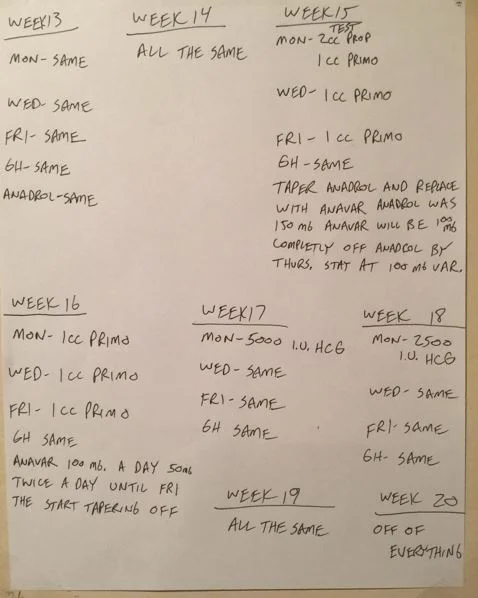 WEEK13
MON- SAME
WED- SAME
FRI- SAME
GH- SAME
ANADROL-SAME
WEEK 14
ALL THE SAME
WEEK15
TEST
MON- 2CC PROP
1CC PRIMO
WED- 1CC PRIMO
FRI- 1CC PRIMO
GH - SAME
TAPER ANADROL AND REPLACE
WITH ANAVAR ANADROL WAS
150 MG ANAVAR WILL BE 100 MG
COMPLETLY OFF ANADROL BY
THURS. STAY AT 100 MG VAR.
WEEK 16
MON- 1CC PRIMO
WED- 1CC PRIMO
FRI- 1CC PRIMO
GH SAME
ANAVAR 100 MG. A DAY 50MG
TWICE A DAY UNTIL FRI
THE START TAPERING OFF
WEEK17
MON-5000 I.U. HCG
WED- SAME
FRI- SAME
GH SAME
WEEK 18
MON- 2500
I.U. HCG
WED- SAME
FRI- SAME
GH- SAME
WEEK 19
ALL THE SAME
WEEK 20
OFF OF
EVERYTHING